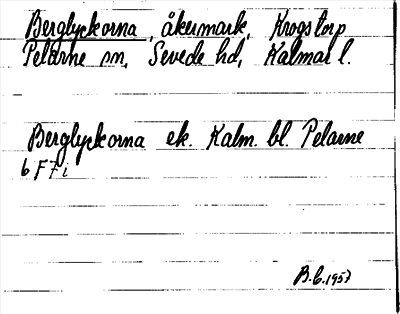 Berglyckorna, åkermark, Krogstorp
Pelarne sn, Sevede hd, Kalmar l.
Berglyckorna ek. Kalm. bl. Pelarne
6 F 7 i
B.L. 1957